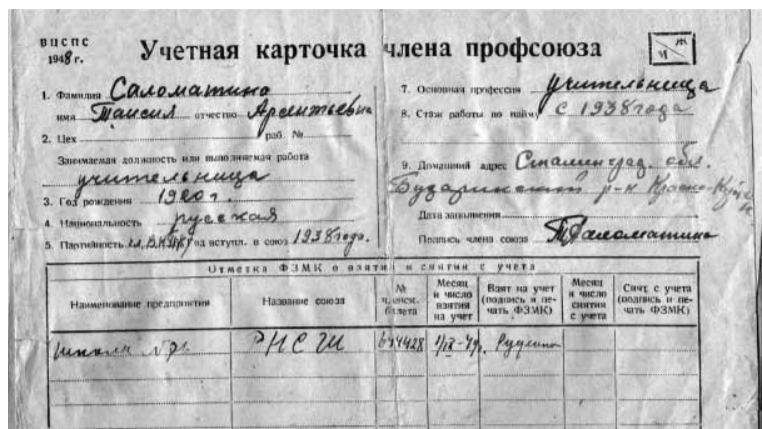 ВЦСПС
1948 г.
Учетная карточка члена профсоюза
М Ж
1. Фамилия Саломатина
имя Таисия отчество Арсентьевна
2. Цех раб. №
Занимаемая должность или выполняемая работа
учительница
3. Год рождения 1920 г.
4. Национальность русская
5. Партийность чл. ВКП(б) Год вступл. в союз 1938 года.
7. Основная профессия учительница
8. Стаж работы по найму с 1938 года
9. Домашний адрес Сталинград. обл.
Бударинский р-н Красно-
Дата заполнения
Подпись члена союза ТСаломатина
Отметка ФЗМК о взятии и снятии с учета
Наименование предприятия
Название союза
№ членск. билета
Месяц и число взятия на учет
Взят на учет (подпись и печать ФЗМК)
Месяц и число снятия с учета
Снят с учета (подпись и печать ФЗМК)
школа РНСШ 644428 1/IX-49.